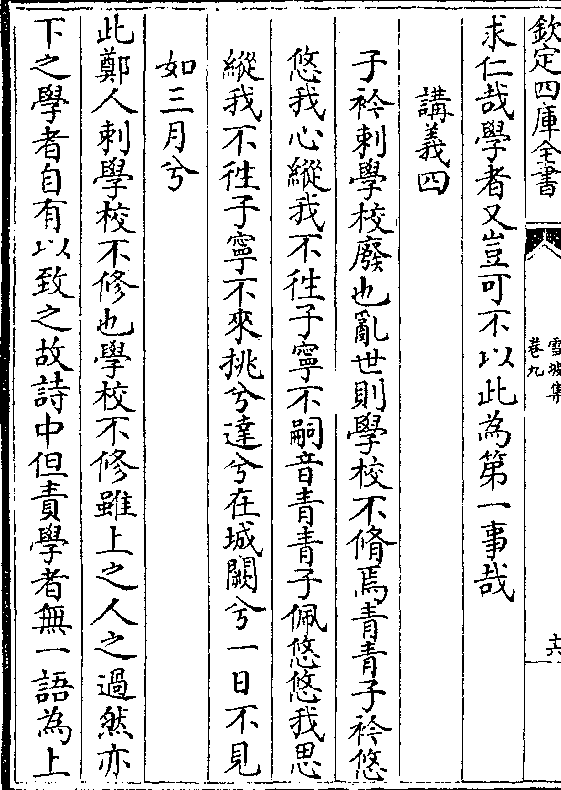 欽定四庫全書
雪坡集
卷九
十六
求仁哉學者又豈可不以此為第一事哉
講義四
子衿刺學校廢也亂世則學校不脩焉青青子衿悠
悠我心縱我不徃子寧不嗣音青青子佩悠悠我思
縱我不徃子寧不來挑兮達兮在城闕兮一日不見
如三月兮
此鄭人刺學校不修也學校不修雖上之人之過然亦
下之學者自有以致之故詩中但責學者無一語為上